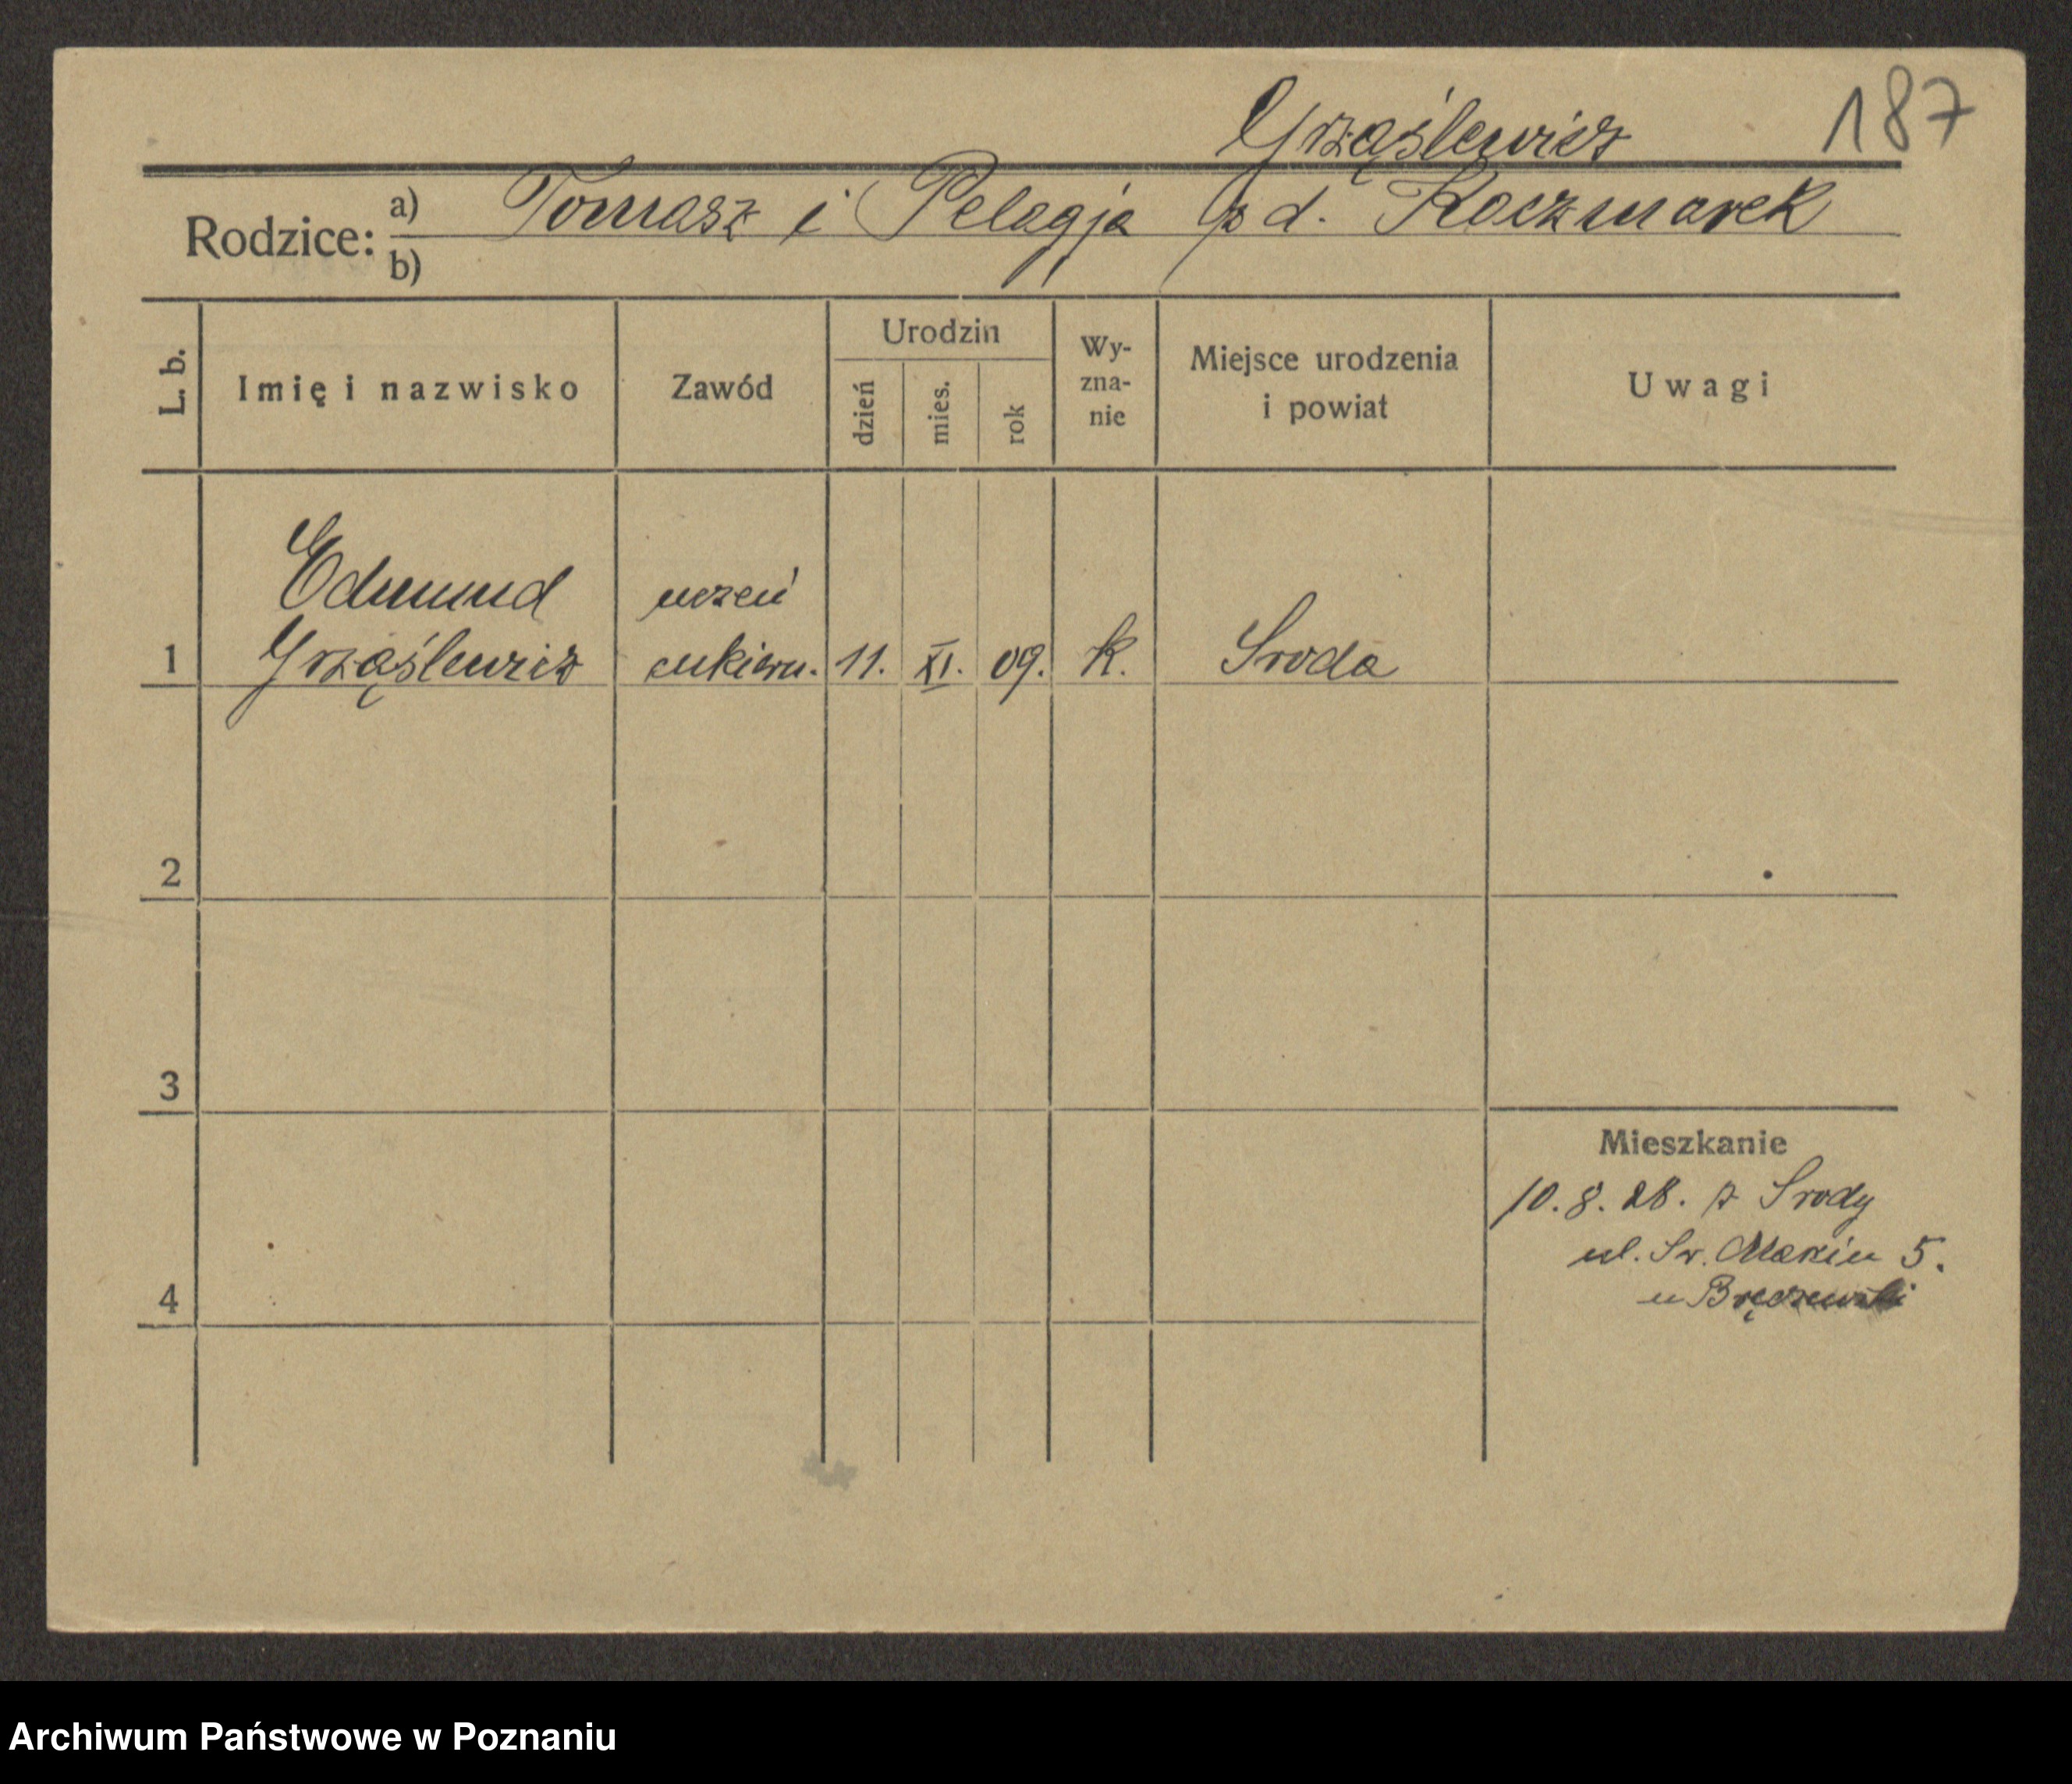 187
Grząślewicz
Rodzice: a) Tomasz i Pelagja z d. Kaczmarek
b)
L. b.
Imię i nazwisko
Zawód
Urodzin
dzień
mies.
rok
Wy-
zna-
nie
Miejsce urodzenia
i powiat
Uwagi
Edmund uczeń
1 Grząślewicz cukiern. 11. XI. 09. k. Sroda
2
3
4
Mieszkanie
10. 8. 28. z Srody
ul. Sw. Marcin 5.
u
Archiwum Państwowe w Poznaniu